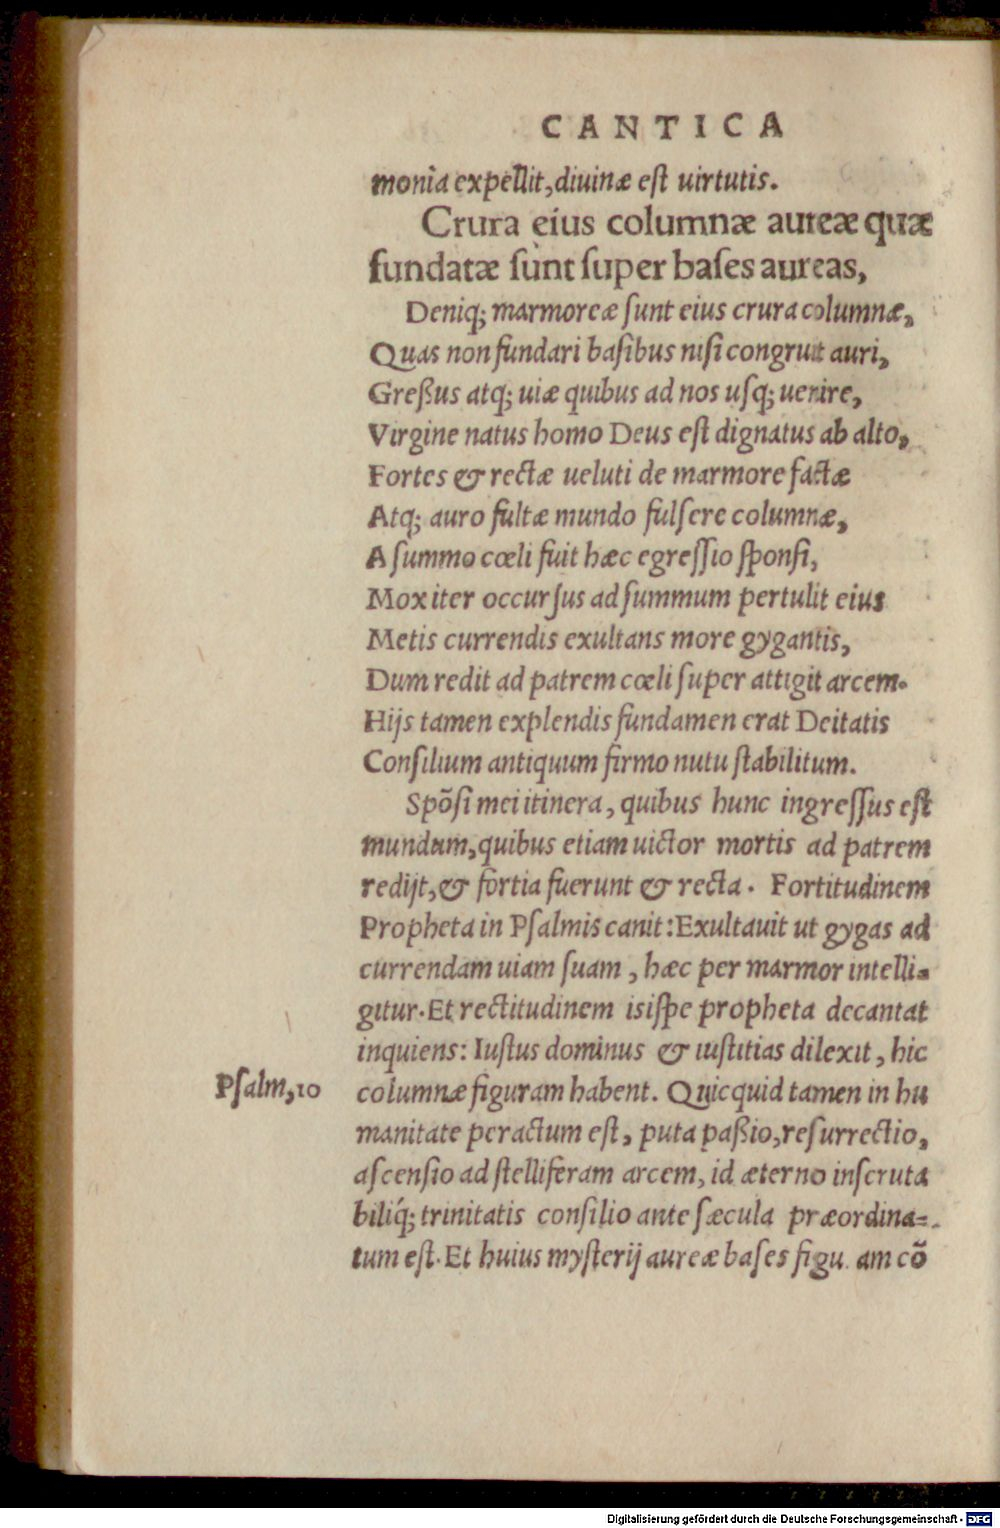 CANTICA
monia expellit, diuinæ est uirtutis.
Crura eius columnæ aureæ quæ
fundatæ sunt super bases aureas,
Deniq; marmoreæ sunt eius crura columnæ,
Quas non fundari basibus nisi congruit auri,
Greßus atq; uiæ quibus ad nos usq; uenire,
Virgine natus homo Deus est dignatus ab alto,
Fortes & rectæ ueluti de marmore factæ
Atq; auro fultæ mundo fulsere columnæ,
A summo cœli fuit hæc egressio sponsi,
Mox iter occursus ad summum pertulit eius
Metis currendis exultans more gygantis,
Dum redit ad patrem cœli super attigit arcem.
Hijs tamen explendis fundamen erat Deitatis
Consilium antiquum firmo nutu stabilitum.
Spõsi mei itinera, quibus hunc ingressus est
mundum, quibus etiam uictor mortis ad patrem
redijt, & fortia fuerunt & recta. Fortitudinem
Propheta in Psalmis canit: Exultauit ut gygas ad
currendam uiam suam, hæc per marmor intelli=
gitur. Et rectitudinem isispe propheta decantat
inquiens: Iustus dominus & iustitias dilexit, hic
Psalm, 10 columnæ figuram habent. Quicquid tamen in hu
manitate peractum est, puta paßio, resurrectio,
ascensio ad stelliferam arcem, id æterno inscruta
biliq́; trinitatis consilio ante sæcula præordina=
tum est. Et huius mysterij aureæ bases figu am cõ
Digitalisierung gefördert durch die Deutsche Forschungsgemeinschaft - DFG